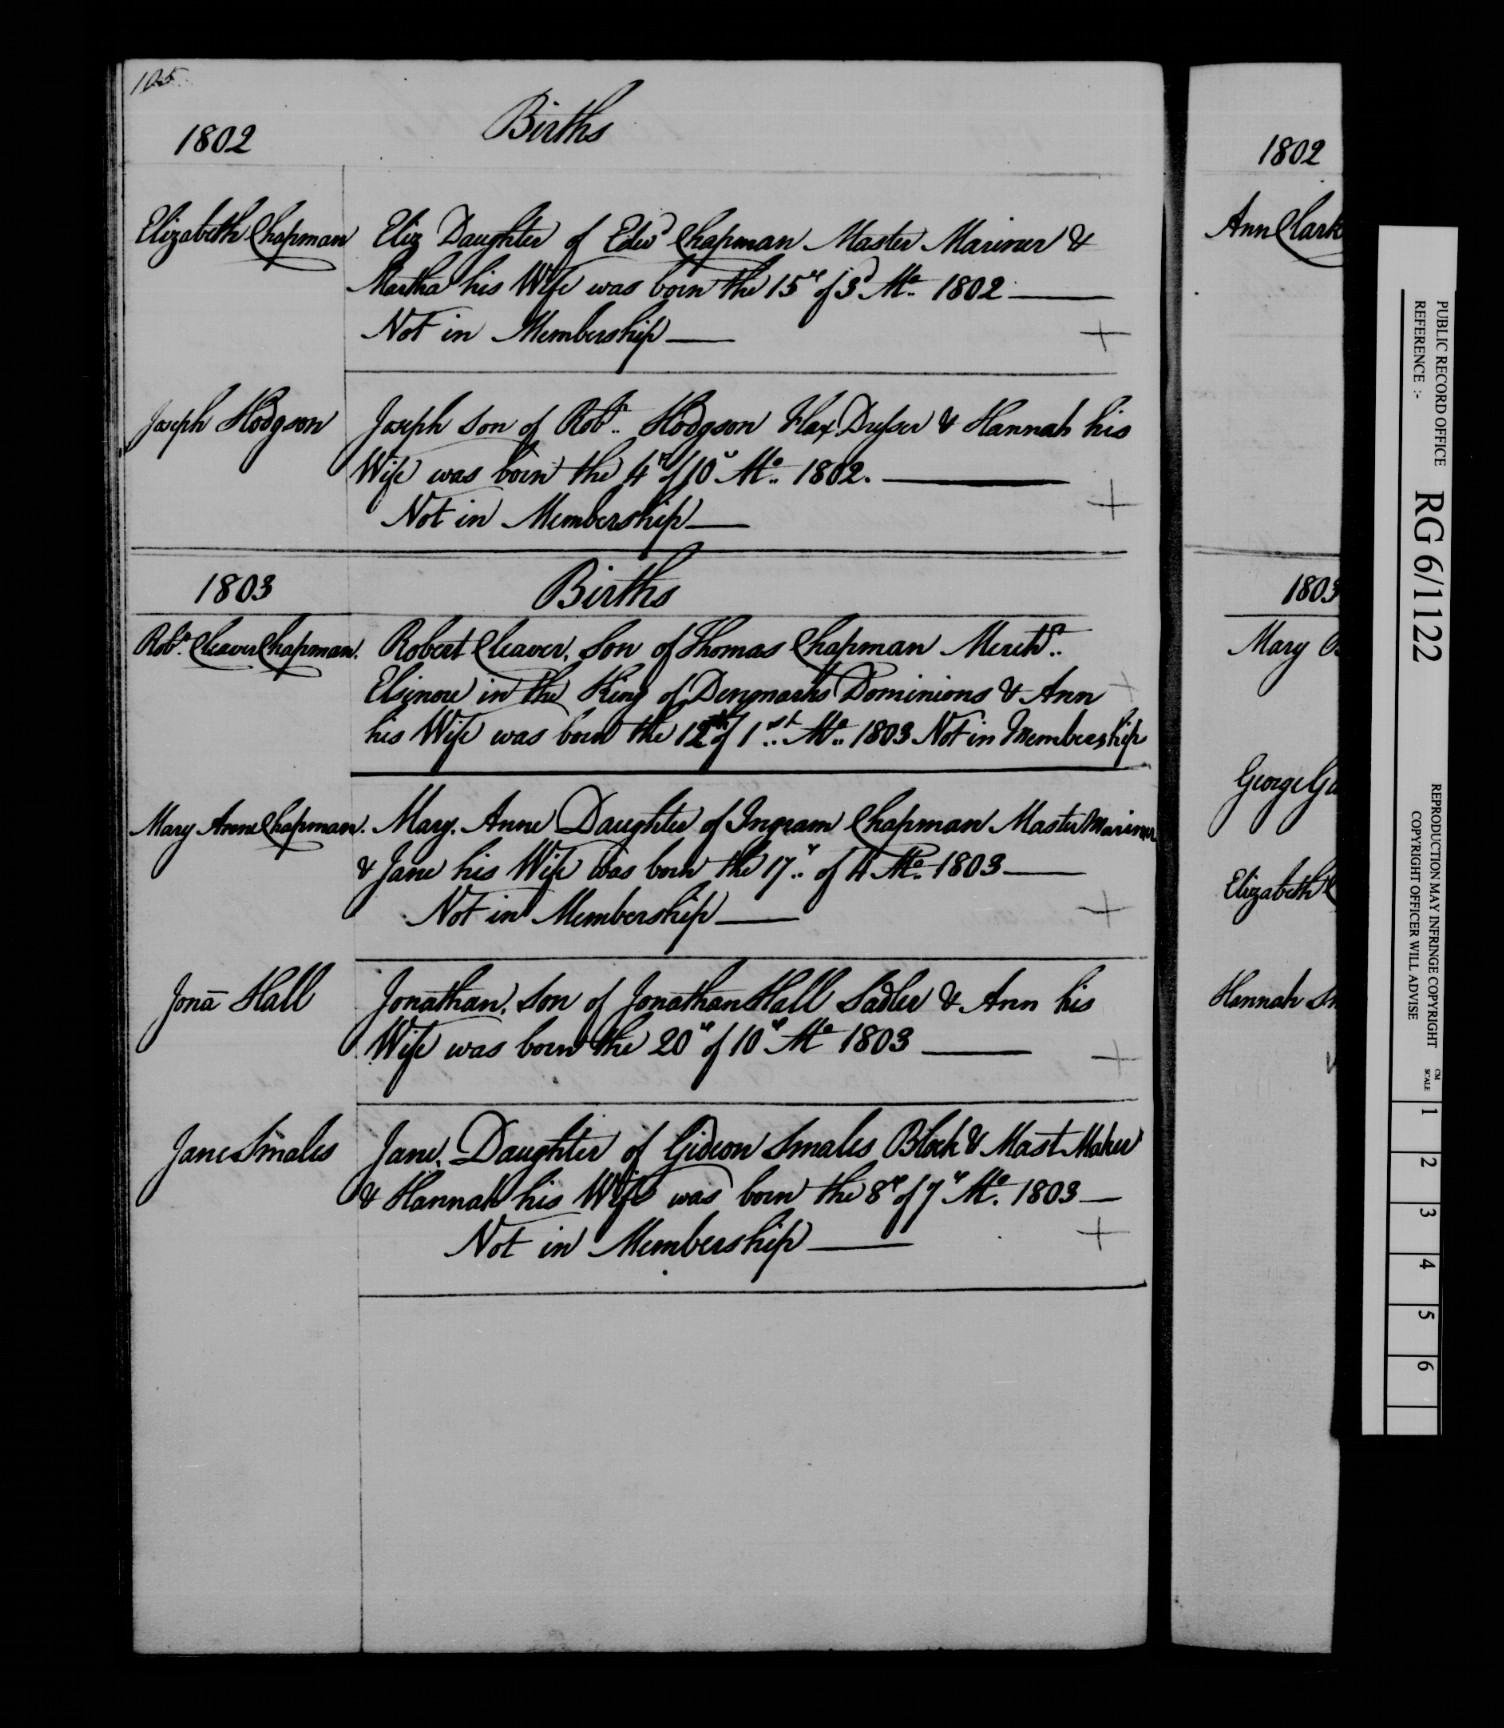 105
1802 Births
Elizabeth Chapman Eliz Daughter of Edwd Chapman Master Mariner &
Martha his Wife was born the 15th of 3d Mo. 1802
Not in Membership +
Joseph Hodgson Joseph Son of Robt.. Hodgson Flax Dresser & Hannah his
Wife was born the 4th of 10th Mo.. 1802.
Not in Membership +
1803 Births
Robt. Cleaver Chapman. Robert Cleaver, Son of Thomas Chapman Mercht..
Elsinore in the King of Denmarks Dominions & Ann +
his Wife was born the 12th of 1st Mo.. 1803 Not in Membership
Mary Anne Chapman. Mary. Anne Daughter of Ingram Chapman Master Mariner
& Jane his Wife was born the 17th.. of 4 Mo. 1803
Not in Membership +
Jona Hall Jonathan, Son of Jonathan Hall Sadler & Ann his
Wife was born the 20th of 10th Mo 1803 +
Jane Smales Jane, Daughter of Gideon Smales Block & Mast Maker
& Hannah his Wife was born the 8th of 7th Mo. 1803
Not in Membership +
1802
Ann Clark
1803
Mary
George
Elizabeth
Hannah
PUBLIC RECORD OFFICE
REFERENCE :-
RG 6/1122
REPRODUCTION MAY INFRINGE COPYRIGHT
COPYRIGHT OFFICER WILL ADVISE
CM
SCALE
1
2
3
4
5
6